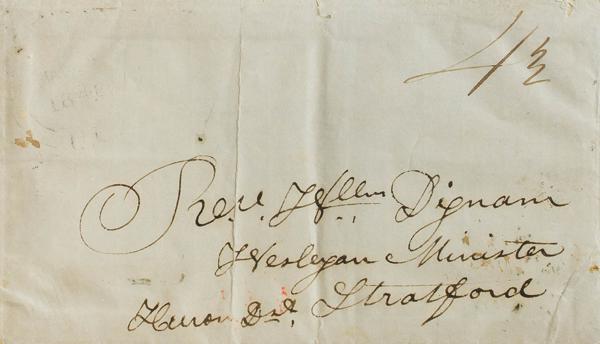 4½
Revd. Wllm Dignam
Wesleyan Minister
Huron Dist, Stratford